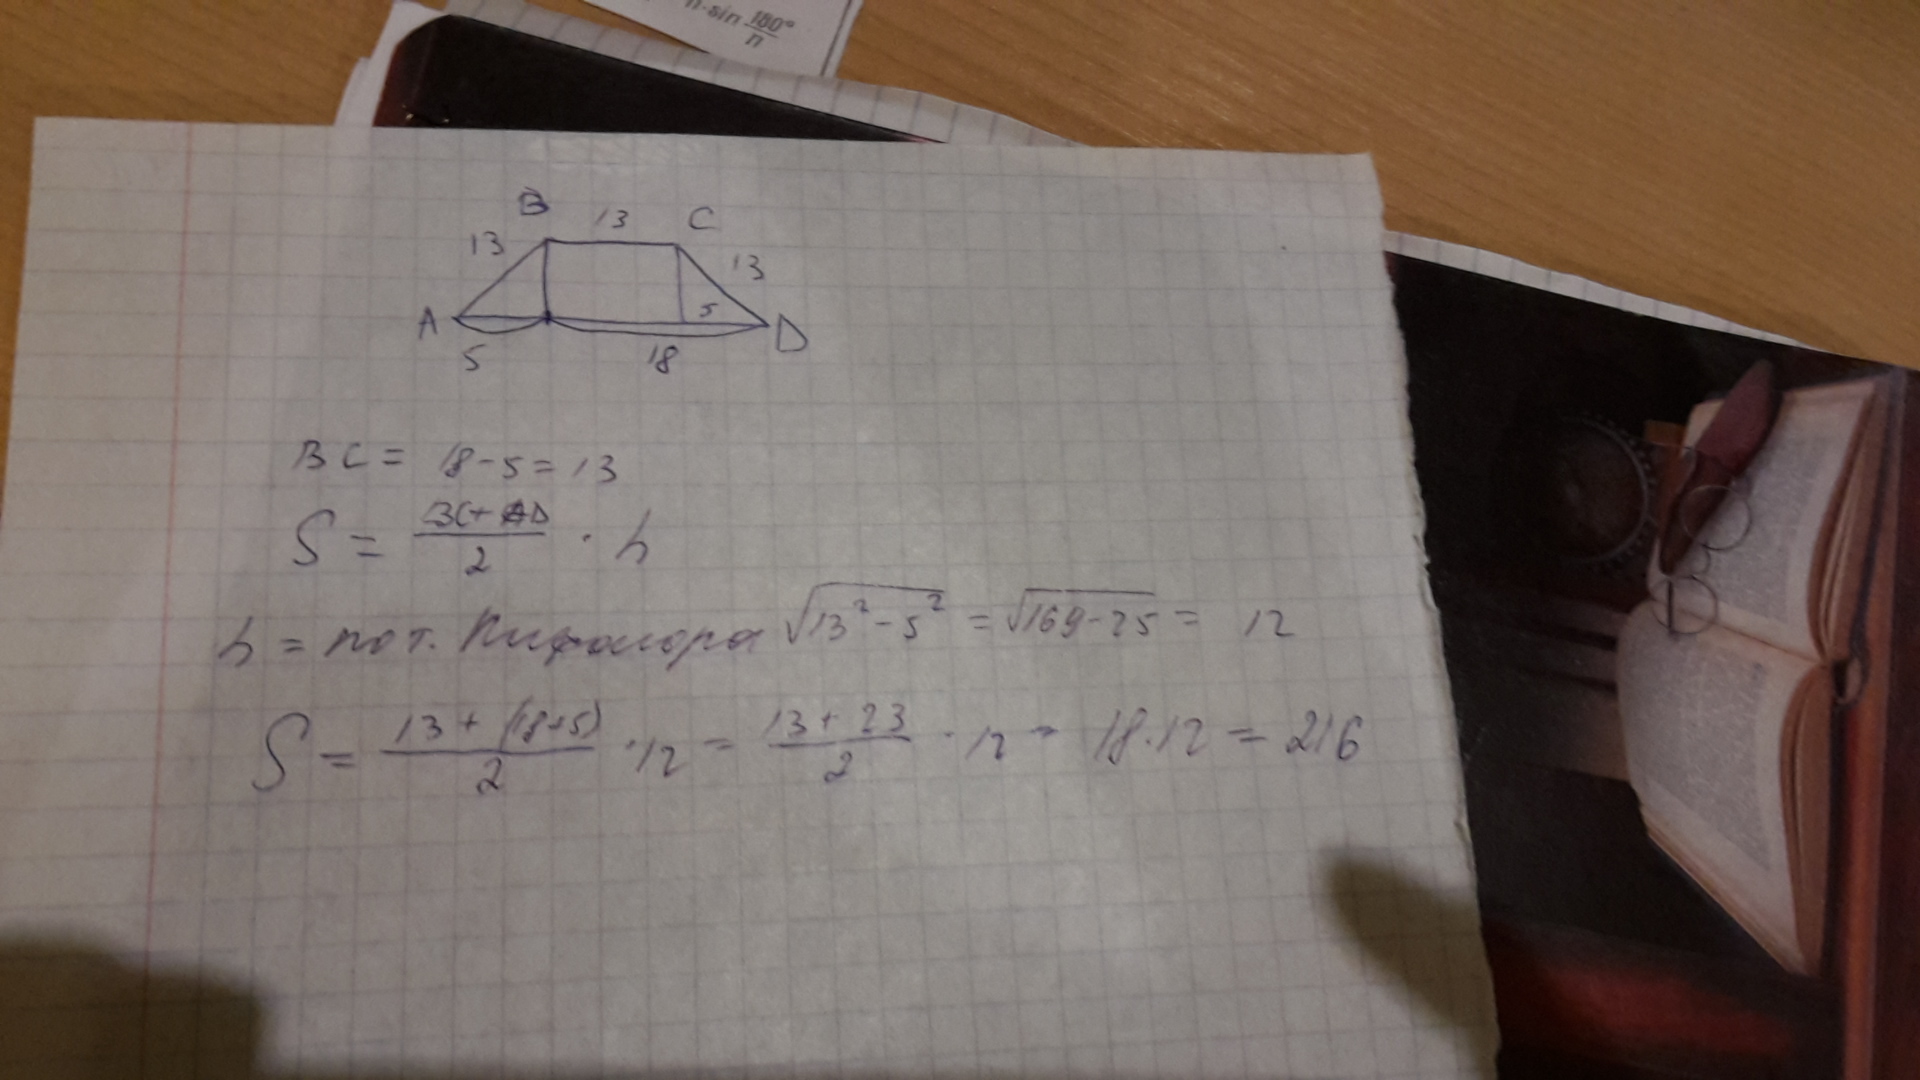 n·sin 180°/n
B 13 C
13 13
A 5 D
5 18
BC = 18-5=13
S = BC+AD/2 · h
h = по т. Пифагора √13²-5² = √169-25 = 12
S = 13+(18+5)/2 ·12 = 13+23/2 ·12 = 18·12 = 216